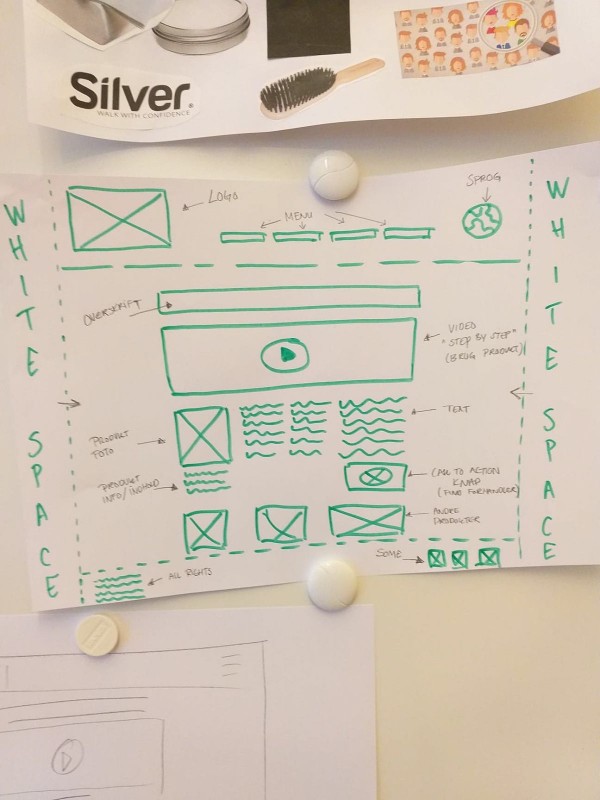 Silver®
WALK WITH CONFIDENCE
WHITE SPACE
LOGO
MENU
SPROG
WHITE SPACE
OVERSKRIFT
VIDEO
"STEP BY STEP"
(BRUG PRODUCT)
TEXT
PRODUKT
FOTO
PRODUKT
INFO/INDHOLD
CALL TO ACTION
KNAP
(FIND FORHANDLER)
ANDRE
PRODUKTER
SOME
ALL RIGHTS